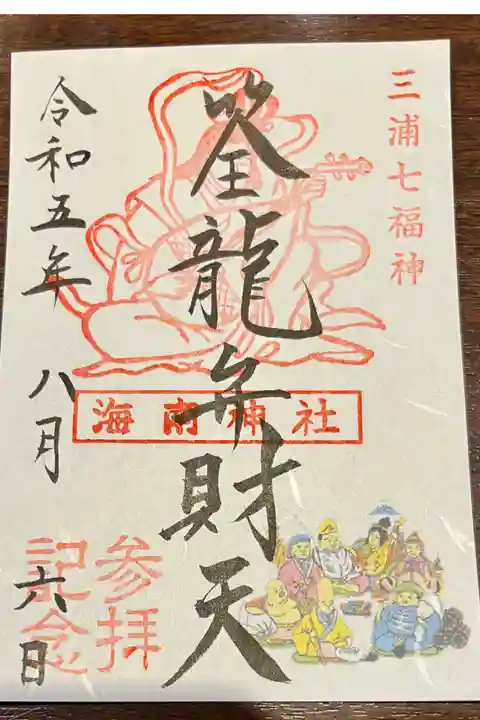 三浦七福神
筌龍弁財天
海南神社
参拝
記念
令和五年
八月
六日